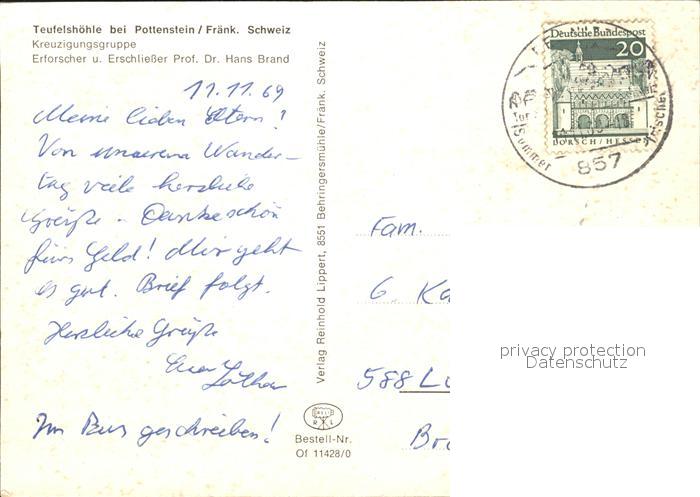 Teufelshöhle bei Pottenstein / Fränk. Schweiz
Kreuzigungsgruppe
Erforscher u. Erschließer Prof. Dr. Hans Brand
11.11.69
Meine lieben Eltern!
Von unserem Wander-
tag viele herzliche
Grüße - Dankeschön
fürs Geld! Mir geht
es gut. Brief folgt.
Herzliche Grüße
Euer
Lothar
Im Bus geschrieben!
Verlag Reinhold Lippert, 8551 Behringersmühle/Fränk. Schweiz
Bestell-Nr.
Of 11428/0
Deutsche Bundespost
20
LORSCH / HESSEN
Sommer
857
Fam.
G. Ka
588 Lü
privacy protection
Datenschutz